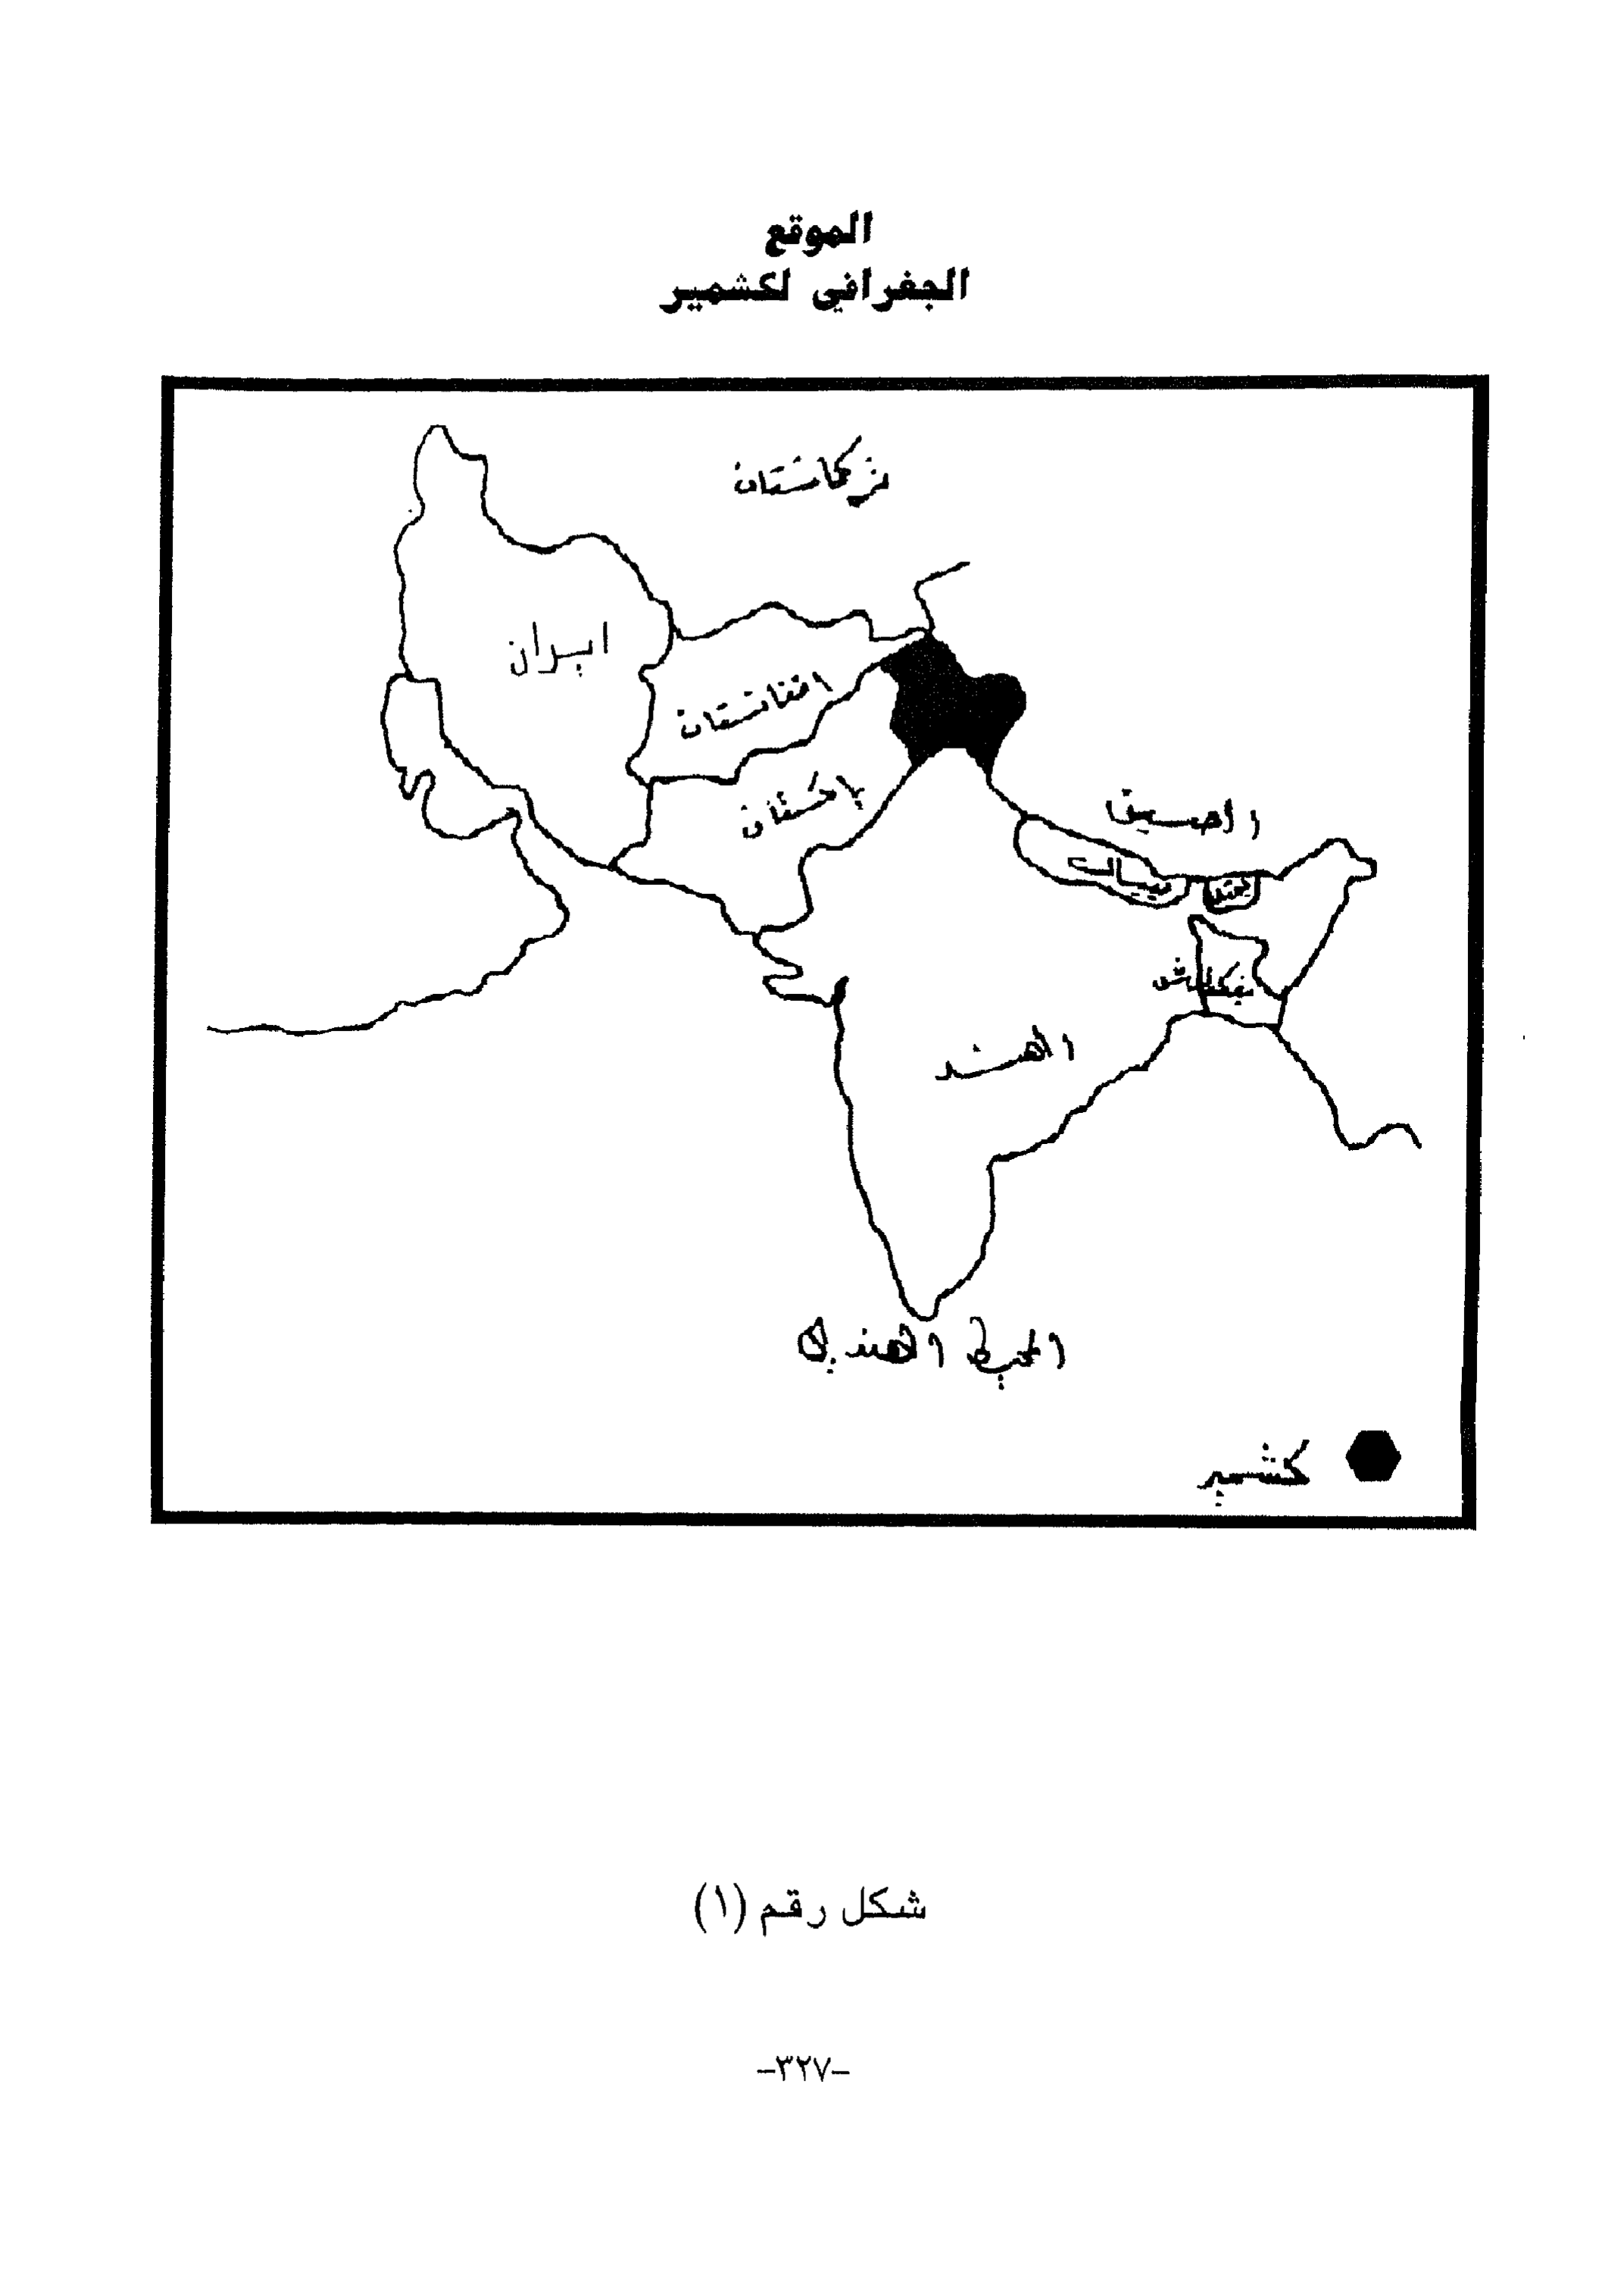 الموقع
الجغرافي لكشمير
تركستان
ايران
افغانستان
باكستان
الصين
نيبال
بنگلادش
الهند
المحيط الهندي
كشمير
شكل رقم (١)
-٣٢٧-